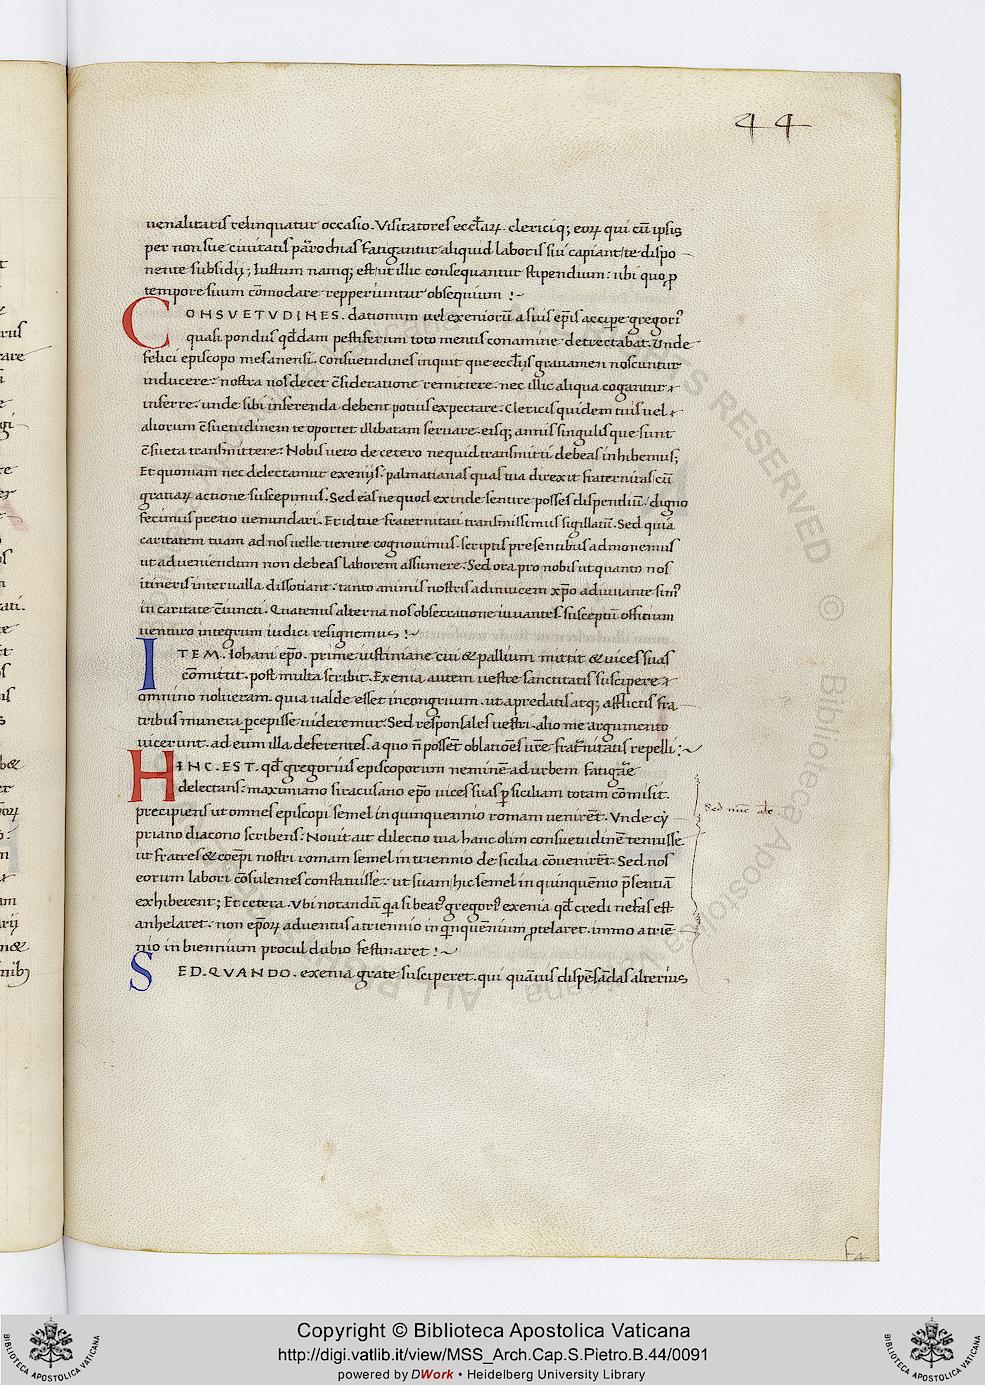 44
uenalitatis relinquatur occasio. Visitatores eccl̄aꝝ. clericiq; eoꝝ qui cū ipsis
per non sue ciuitatis parrochias fatigantur aliquid laboris sui capiant te dispo
nente subsidij; Iustum namq; est ut illic consequantur stipendium: ubi quo ꝓ
tempore suum cōmodare repperiuntur obsequium
CONSVETVDINES. dationum uel exeniorū a suis ep̄is accipe gregori᾿
quasi pondus qd̄dam pestiferum toto mentis conamine detrectabat. Vnde
felici episcopo mesanensi. Consuetudines inquit que eccl̄ijs grauamen noscuntur
inducere: nostra nos decet c̄sideratione remittere. nec illic aliqua cogantur
inferre: unde sibi inferenda debent potius expectare. Clericis quidem tuis uel
aliorum c̄suetudinem te oportet illibatam seruare. eisq; annis singulis que sunt
c̄sueta transmittere: Nobis uero de cetero ne quid transmitti debeas inhibemus;
Et quoniam nec delectamur exenijs: palmatianas quas tua direxit fraternitas cū
gratiaꝝ actione suscepimus. Sed eas ne quod exinde sentire posses dispendiū. digno
fecimus pretio uenundari. Et id tue fraternitati transmissimus sigillatū. Sed quia
caritatem tuam ad nos uelle uenire cognouimus. scriptis presentibus admonemus
ut ad ueniendum non debeas laborem assumere: Sed ora pro nobis ut quanto nos
itineris interualla dissotiant. tanto animis nostris adinuicem xp̄o adiuuante sim᾿
in caritate c̄iuncti. Quatenus alterna nos obsecratione iuuantes. susceptū officium
uenturo integrum iudici resignemus
ITEM. Iohani ep̄o. prime iustiniane cui & pallium mittit & uices suas
cōmittit. post multa scribit. Exenia autem uestre sanctitatis suscipere
omnino nolueram. quia ualde esset incongruum. ut a predatis atq; afflictis fra
tribus munera ꝑcepisse uideremur: Sed responsales uestri. alio me argumento
uicerunt. ad eum illa deferentes. a quo n̄ possēt oblatiōes ur̄e frat᾿nitatis repelli
HINC. EST. qd̄ gregorius episcoporum neminē ad urbem fatigare
delectans: maximiano siracusano ep̄o uices suas ꝑ siciliam totam cōmisit.
precipiens ut omnes episcopi semel in quinquennio romam uenirēt. Vnde cy
priano diacono scribens: Nouit aīt dilectio tua hanc olim consuetudinē tenuisse
ut fratres & coep̄i nostri romam semel in triennio de sicilia cōuenirēt. Sed nos
eorum labori cōsulentes constituisse: ut suam hic semel in quinquēnio p̄sentiā
exhiberent; Et cetera. Vbi notandū q̄a si beat᾿ gregori᾿ exenia qd̄ credi nefas est
anhelaret. non ep̄oꝝ aduentus a triennio in q̄nquēnium ꝓtelaret. immo a triē
nio in biennium procul dubio festinaret
SED. QVANDO. exenia grate susciperet. qui quāuis dispēsādas alterius
Copyright © Biblioteca Apostolica Vaticana
http://digi.vatlib.it/view/MSS_Arch.Cap.S.Pietro.B.44/0091
powered by DWork • Heidelberg University Library